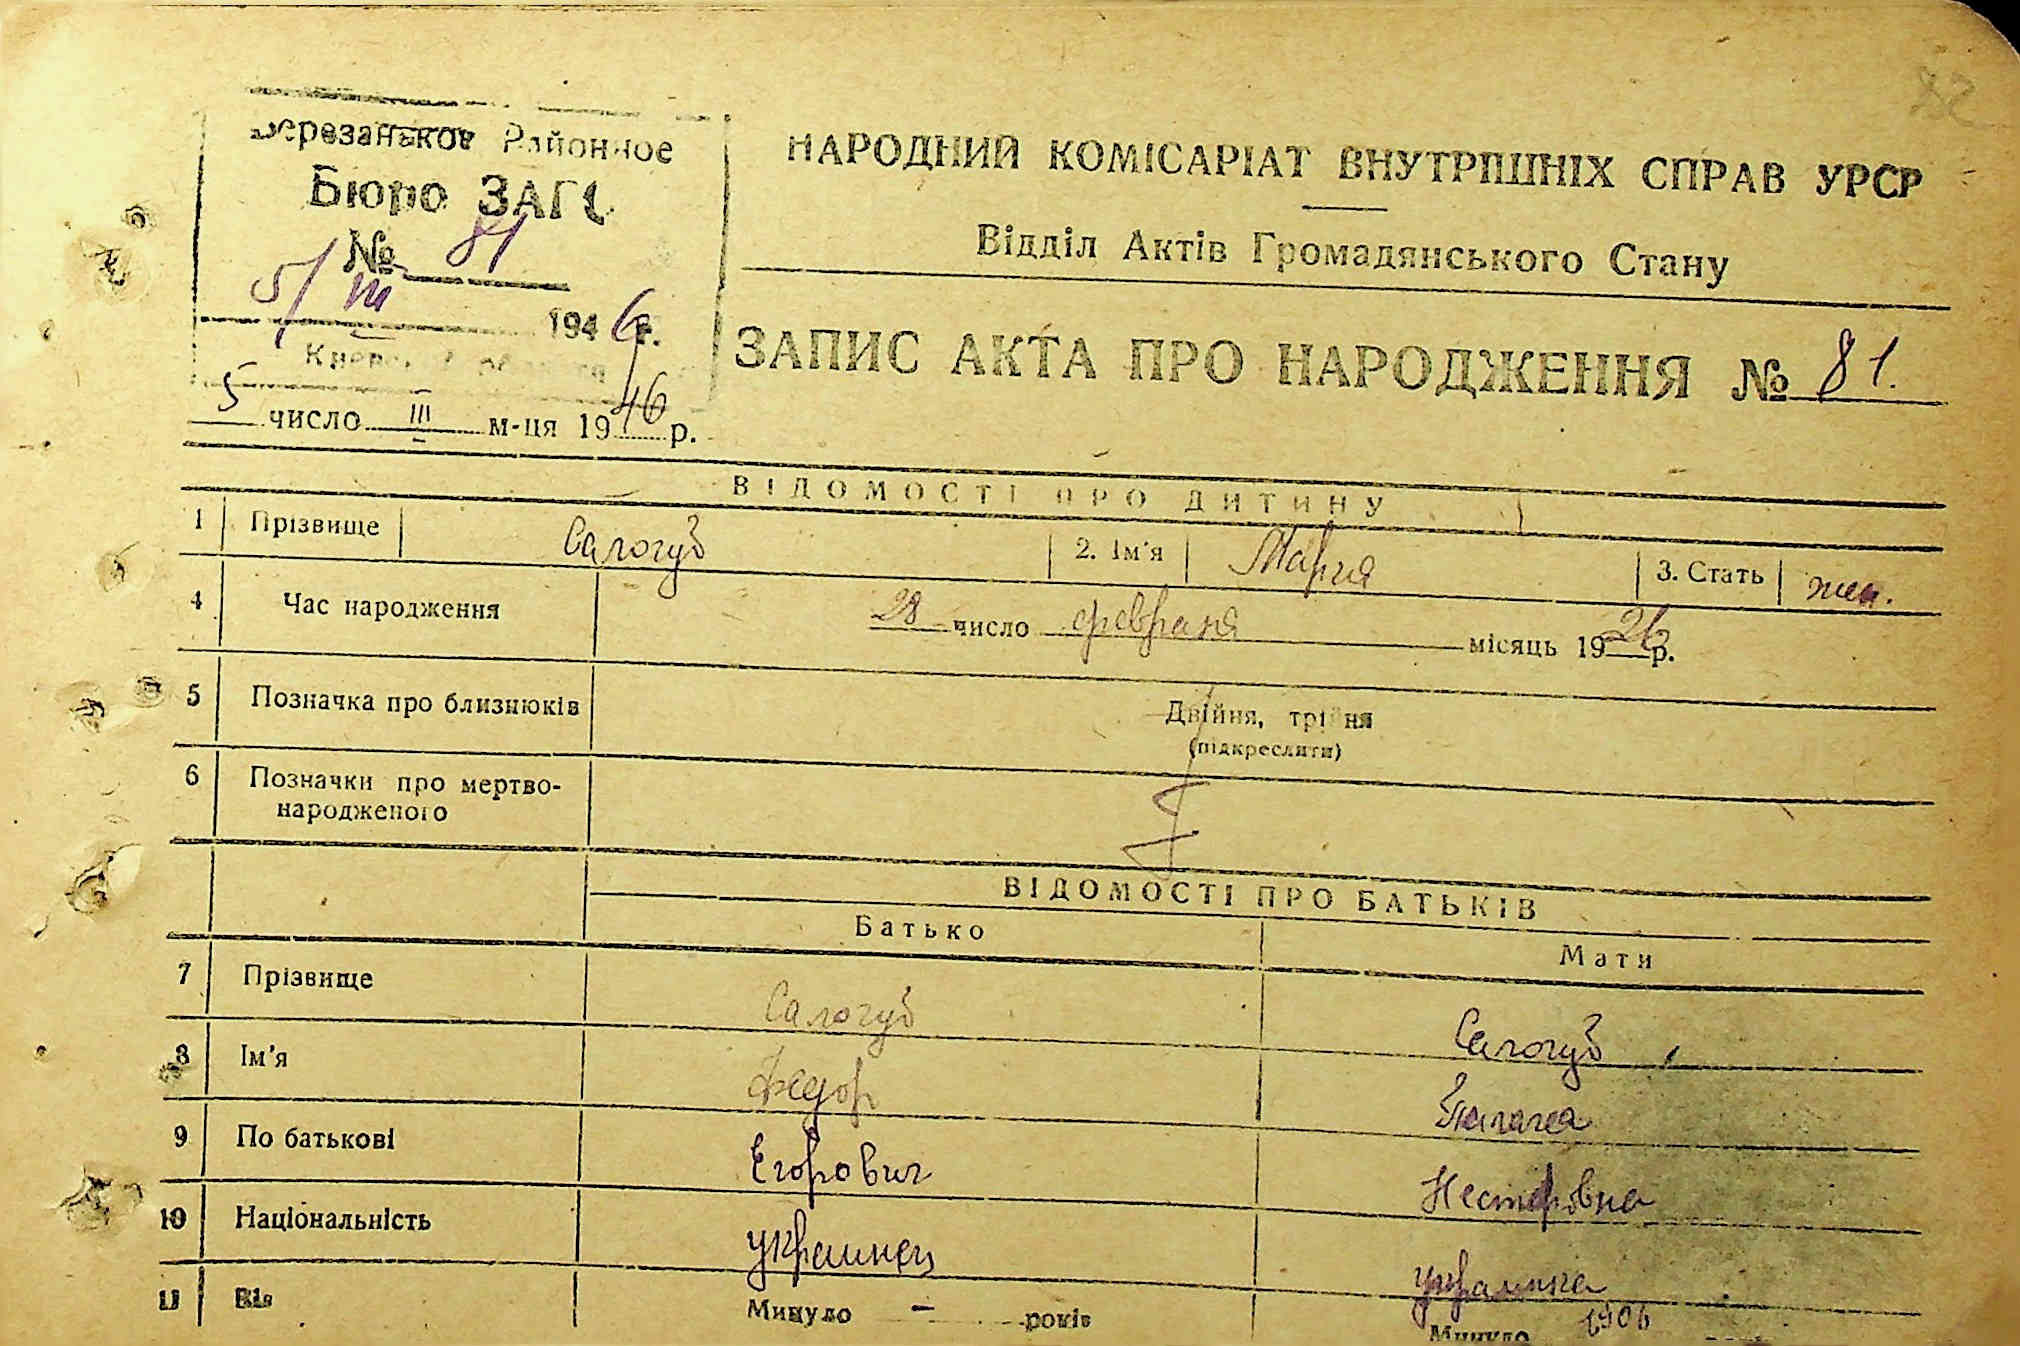 Березанское Районное
Бюро ЗАГС
№ 81
5/III 1946 г.
НАРОДНИЙ КОМІСАРІАТ ВНУТРІШНІХ СПРАВ УРСР
Відділ Актів Громадянського Стану
ЗАПИС АКТА ПРО НАРОДЖЕННЯ № 81.
5 число III м-ця 1946 р.
ВІДОМОСТІ ПРО ДИТИНУ
1 Прізвище Салогуб 2. Ім'я Мария 3. Стать жен.
4 Час народження 28 число февраля місяць 1926 р.
5 Позначка про близнюків Двійня, трійня
(підкреслити)
6 Позначки про мертво-
народженого
ВІДОМОСТІ ПРО БАТЬКІВ
Батько Мати
7 Прізвище Салогуб Салогуб
8 Ім'я Федор
9 По батькові Егорович Нестеровна
10 Національність украинец украинка
11 Вік Минуло - років Минуло 1906